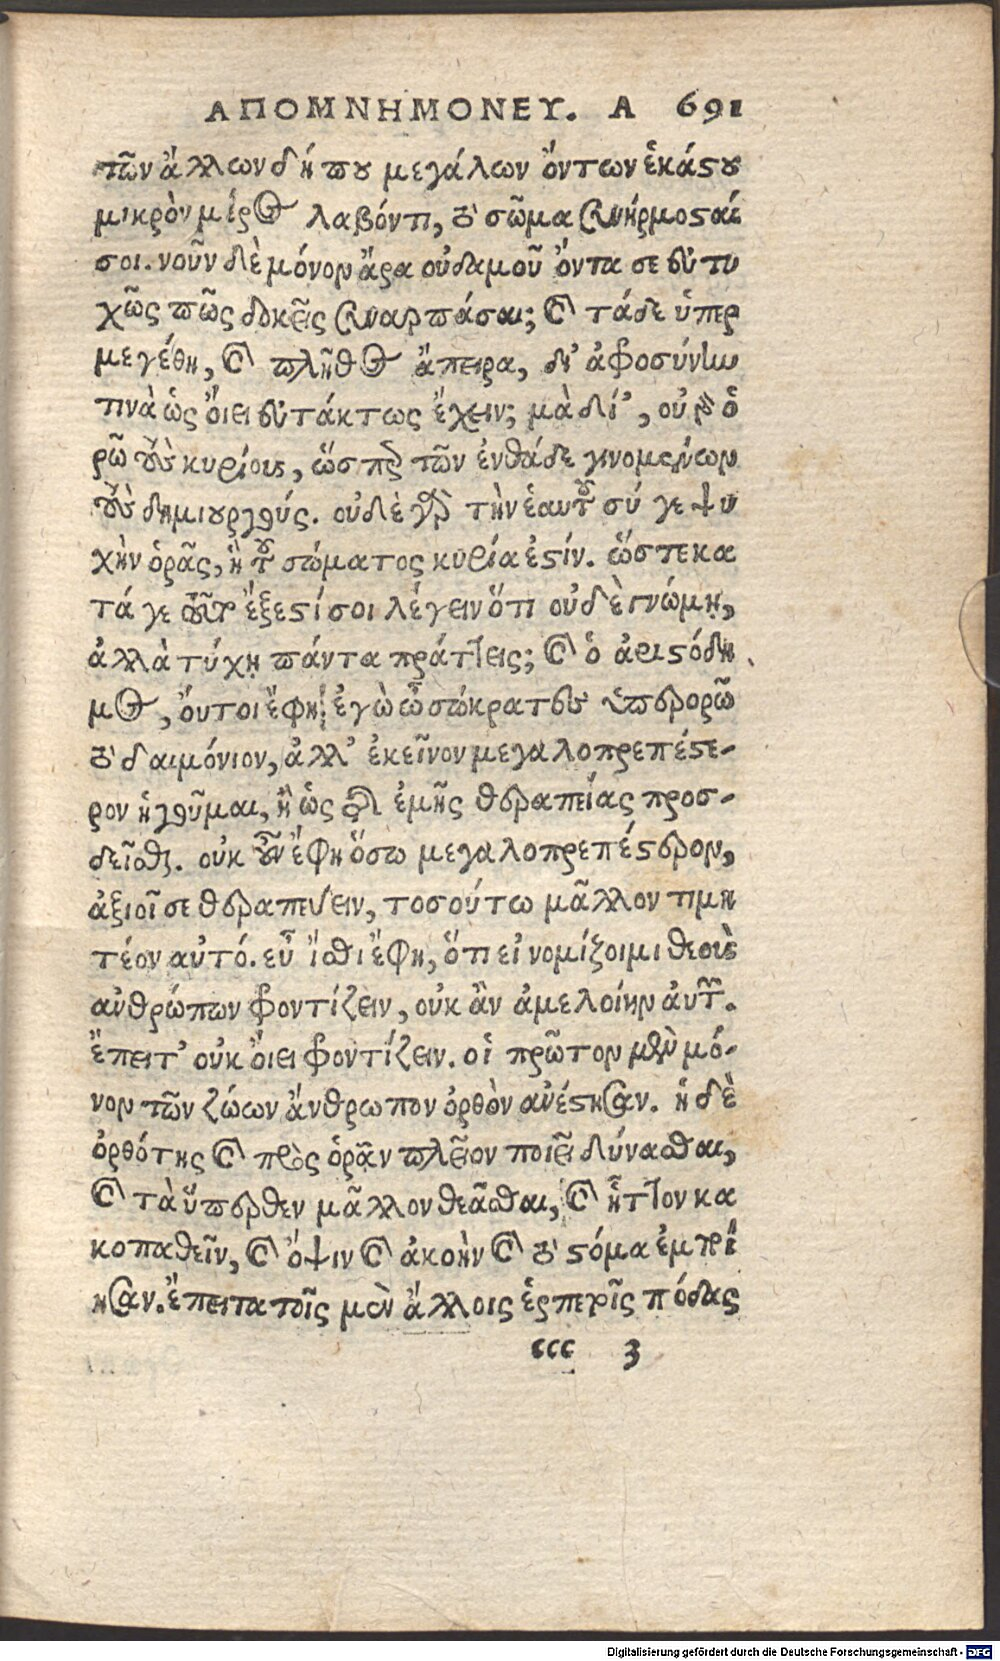 ΑΠΟΜΝΗΜΟΝΕΥ. Α 691
τῶν ἄλλων δήπου μεγάλων ὄντων ἑκάστου
μικρὸν μέρος λαβόντι, τὸ σῶμα συνήρμοσταί
σοι. νοῦν δὲ μόνον ἄρα οὐδαμοῦ ὄντα σε εὐτυ
χῶς πῶς δοκεῖς συναρπάσαι; καὶ τάδε ὑπερ
μεγέθη, καὶ πλῆθος ἄπειρα, δι' ἀφροσύνην
τινὰ ὡς ὄιει εὐτάκτως ἔχειν; μὰ δί', οὐ γὰρ ὁ
ρῶ τοὺς κυρίους, ὥσπερ τῶν ἐνθάδε γινομένων
τοὺς δημιουργούς. οὐδὲ γὰρ τὴν ἑαυτοῦ σύ γε ψυ
χὴν ὁρᾷς, ἣ τοῦ σώματος κυρία ἐστίν. ὥστε κα
τά γε τοῦτο ἔξεστί σοι λέγειν ὅτι οὐδὲ γνώμῃ,
ἀλλὰ τύχῃ πάντα πράττεις; καὶ ὁ ἀριστόδη
μος, ὄυτοι ἔφη, ἐγὼ ὦ σώκρατες ὑπερορῶ
τὸ δαιμόνιον, ἀλλ' ἐκεῖνον μεγαλοπρεπέστε-
ρον ἡγοῦμαι, ἢ ὡς τῆς ἐμῆς θεραπείας προσ-
δεῖσθαι. οὐκ οὖν ἔφη ὅσῳ μεγαλοπρεπέστερον,
ἀξιοῖ σε θεραπεύειν, τοσούτω μᾶλλον τιμη
τέον αὐτό. εὖ ἴσθι ἔφη, ὅτι εἰ νομίζοιμι θεοὺς
ἀνθρώπων φροντίζειν, οὐκ ἂν ἀμελοίην ἀυτῶν.
ἔπειτ' οὐκ ὄιει φροντίζειν. οἱ πρῶτον μὲν μό-
νον τῶν ζώων ἄνθρωπον ὀρθὸν ἀνέστησαν. ἡ δὲ
ὀρθότης καὶ προς ὁρᾷν πλεῖον ποιεῖ δύνασθαι,
καὶ τὰ ὕπερθεν μᾶλλον θεᾶσθαι, καὶ ἧττον κα
κοπαθεῖν, καὶ ὄψιν καὶ ἀκοὴν καὶ τὸ στόμα ἐμποί
ησαν. ἔπειτα τοῖς μὲν ἄλλοις ἑρπετοῖς πόδας
ccc 3
Digitalisierung gefördert durch die Deutsche Forschungsgemeinschaft - DFG